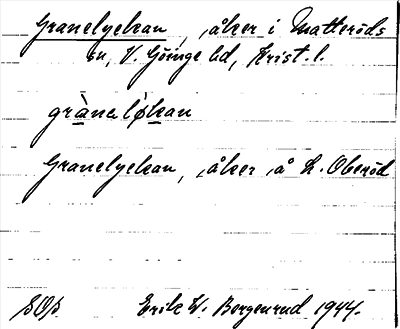 Granelyckan, åker i Matteröds
sn, V. Göinge hd, Krist. l.
gràna løkan
Granelyckan, åker å L. Oberöd
SOs Erik W. Bergenrud 1944.